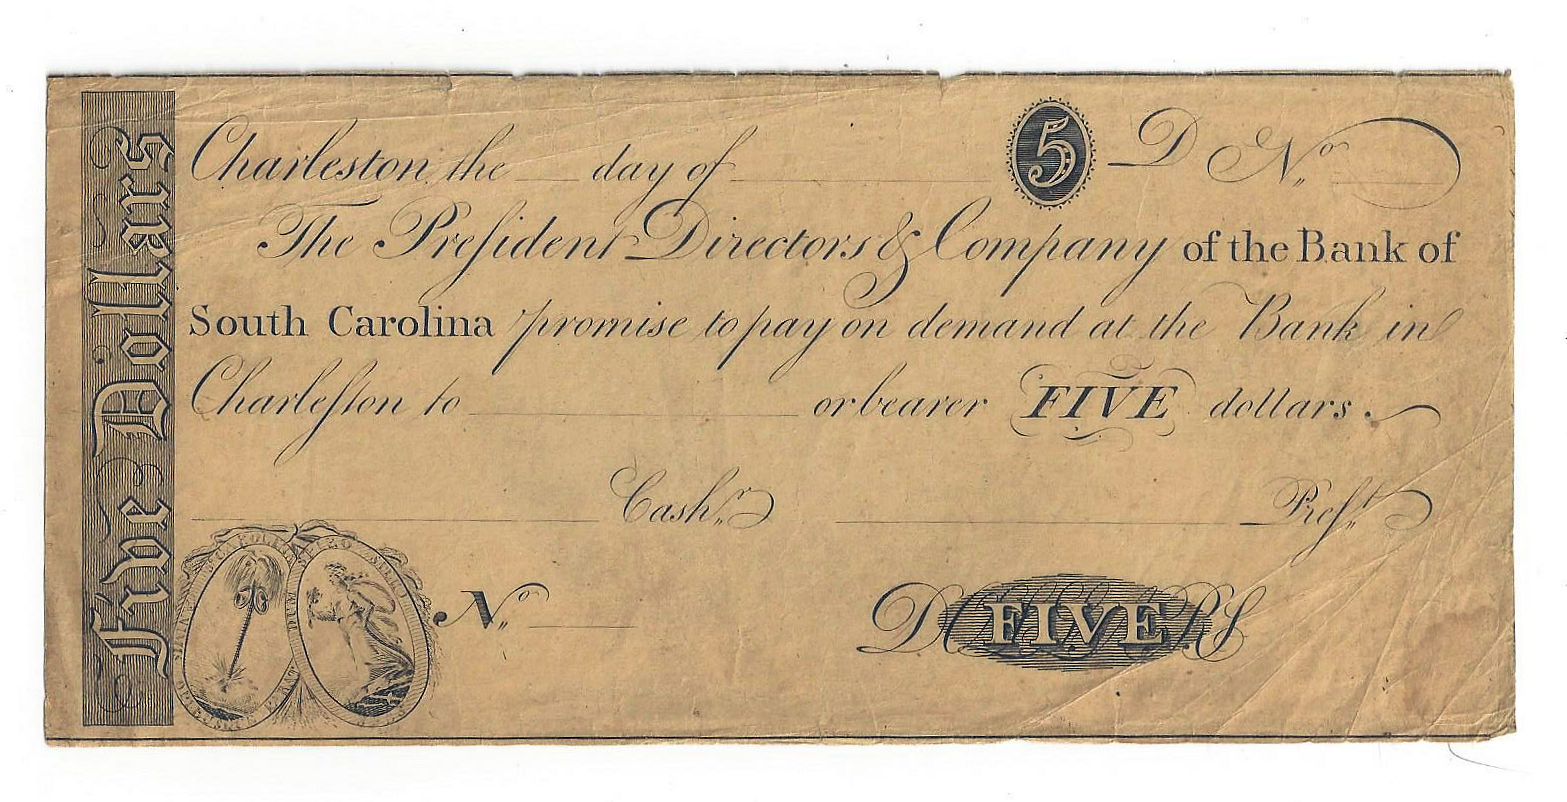 Five Dollars
Charleston the ___ day of ___ 5 D No.
The Preſident Directors & Company of the Bank of
South Carolina promise to pay on demand at the Bank in
Charleſton to ___ or bearer FIVE dollars.
___ Cashr. ___ Preſt.
No. ___ DOLLARS FIVE